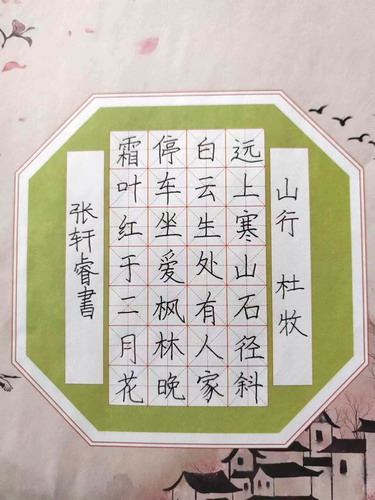 山行 杜牧
远上寒山石径斜
白云生处有人家
停车坐爱枫林晚
霜叶红于二月花
张轩睿書